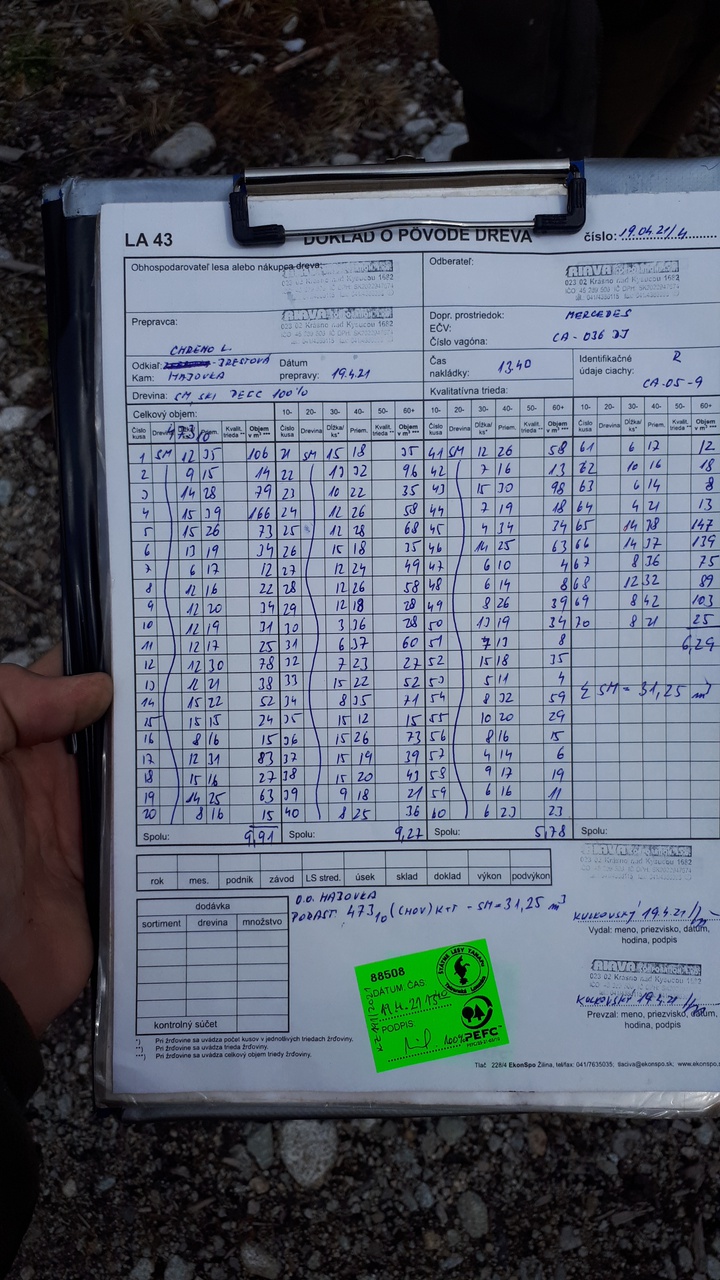 LA 43 DOKLAD O PÔVODE DREVA číslo: 19.04.21/4
Obhospodarovateľ lesa alebo nákupca dreva:
Odberateľ:
023 02 Krásno nad Kysucou 1682
023 02 Krásno nad Kysucou 1682
Prepravca:
Dopr. prostriedok: MERCEDES
EČV:
Číslo vagóna: CA - 036 DJ
Odkiaľ:
Kam: HÁJOVKA
Dátum
prepravy: 19.4.21
Čas
nakládky: 13.40
Identifikačné R
údaje ciachy:
CA-05-9
Drevina: SM SKI PEFC 100%
Kvalitatívna trieda:
Celkový objem:
10- 20- 30- 40- 50- 60+ 10- 20- 30- 40- 50- 60+
Číslo kusa Drevina Dĺžka/ ks* Priem. Kvalit. trieda ** Objem v m³ ***
1 SM 12 35 106 21 SM 15 18 35 41 SM 12 26 58 61 6 17 12
2 9 15 14 22 13 32 96 42 7 16 13 62 10 16 18
3 14 28 79 23 10 22 35 43 15 30 98 63 6 14 8
4 15 39 166 24 12 26 58 44 7 19 18 64 4 21 13
5 15 26 73 25 12 28 68 45 4 34 34 65 14 38 147
6 13 19 34 26 15 18 35 46 14 25 63 66 14 37 139
7 6 17 12 27 12 24 49 47 6 10 4 67 8 36 75
8 12 16 22 28 12 26 58 48 6 14 8 68 12 32 89
9 12 20 34 29 12 18 28 49 8 26 39 69 8 42 103
10 12 19 31 30 3 36 28 50 13 19 34 70 8 21 25
11 12 17 25 31 6 37 60 51 7 13 8 6,29
12 12 30 78 32 7 23 27 52 15 18 35
13 12 21 38 33 15 22 52 53 5 11 4 Σ SM = 31,25 m³
14 15 22 52 34 8 35 71 54 8 32 59
15 15 15 24 35 15 12 15 55 10 20 29
16 8 16 15 36 15 26 73 56 8 16 15
17 12 31 83 37 15 19 39 57 4 14 6
18 15 16 27 38 15 20 43 58 9 17 19
19 14 25 63 39 9 18 21 59 6 16 11
20 8 16 15 40 8 25 36 60 6 23 23
Spolu: 9,91 Spolu: 9,27 Spolu: 5,78 Spolu:
023 02 Krásno nad Kysucou 1682
rok mes. podnik závod LS stred. úsek sklad doklad výkon podvýkon
dodávka
sortiment drevina množstvo
kontrolný súčet
O.O. HÁJOVKA
PORAST 473 10 (CHOV) K+T - SM = 31,25 m³
19.4.21
Vydal: meno, priezvisko, dátum,
hodina, podpis
023 02 Krásno nad Kysucou 1682
19.4.21
Prevzal: meno, priezvisko, dátum,
hodina, podpis
88508
DÁTUM, ČAS:
19.4.21
PODPIS:
ŠTÁTNE LESY TANAPu
100% PEFC
*) Pri žrďovine sa uvádza počet kusov v jednotlivých triedach žrďoviny.
**) Pri žrďovine sa uvádza trieda žrďoviny.
***) Pri žrďovine sa uvádza celkový objem triedy žrďoviny.
Tlač 228/4 EkonSpo Žilina, tel/fax: 041/7635035, tlaciva@ekonspo.sk, www.ekonspo